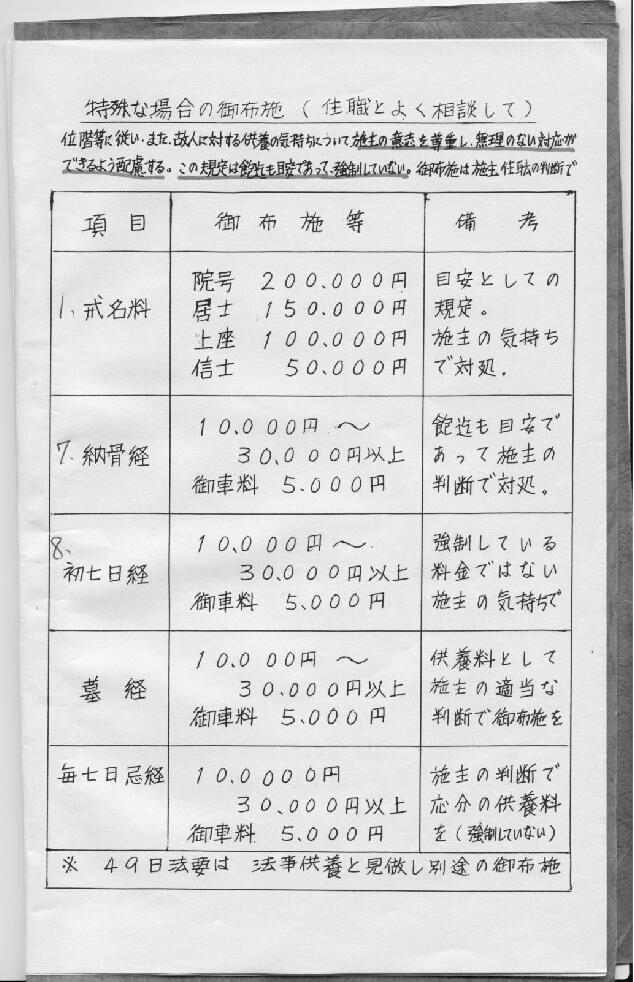 特殊な場合の御布施（住職とよく相談して）
位階等に従い、また、故人に対する供養の気持ちについて施主の意志を尊重し、無理のない対応が
できるよう配慮する。この規定は飽迄も目安であって、強制していない。御布施は施主、住職の判断で
項目 御布施等 備考
1、戒名料
院号 200.000円
居士 150.000円
上座 100.000円
信士 50.000円
目安としての
規定。
施主の気持ち
で対処.
7.納骨経
10.000円 〜
30.000円以上
御車料 5.000円
飽迄も目安で
あって施主の
判断で対処。
8、
初七日経
10.000円〜
30.000円以上
御車料 5.000円
強制している
料金ではない
施主の気持ちで
墓経
10.000円 〜
30.000円以上
御車料 5.000円
供養料として
施主の適当な
判断で御布施を
毎七日忌経
10.0000円
30.000円以上
御車料 5.000円
施主の判断で
応分の供養料
を(強制していない)
※ 49日法要は 法事供養と見做し別途の御布施